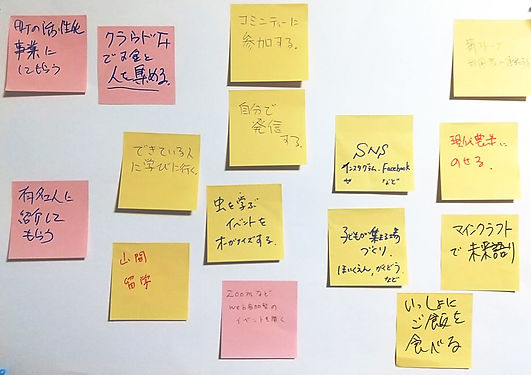 町の活性化
事業に
してもらう
クラウドF
でお金と
人を集める。
コミニティーに
参加する。
自分で
発信
する。
できている人
に学びに行く。
SNS
インスタグラム、Facebook
など
現代農業に
のせる。
有名人に
紹介して
もらう
虫を学ぶ
イベントを
オーガナイズする。
子どもが集まる場
づくり。
ほいくえん、がくどう、
など
マインクラフト
で未来語り
山間
留学
Zoomなど
web参加型の
イベントを開く
いっしょに
ご飯を
食べる